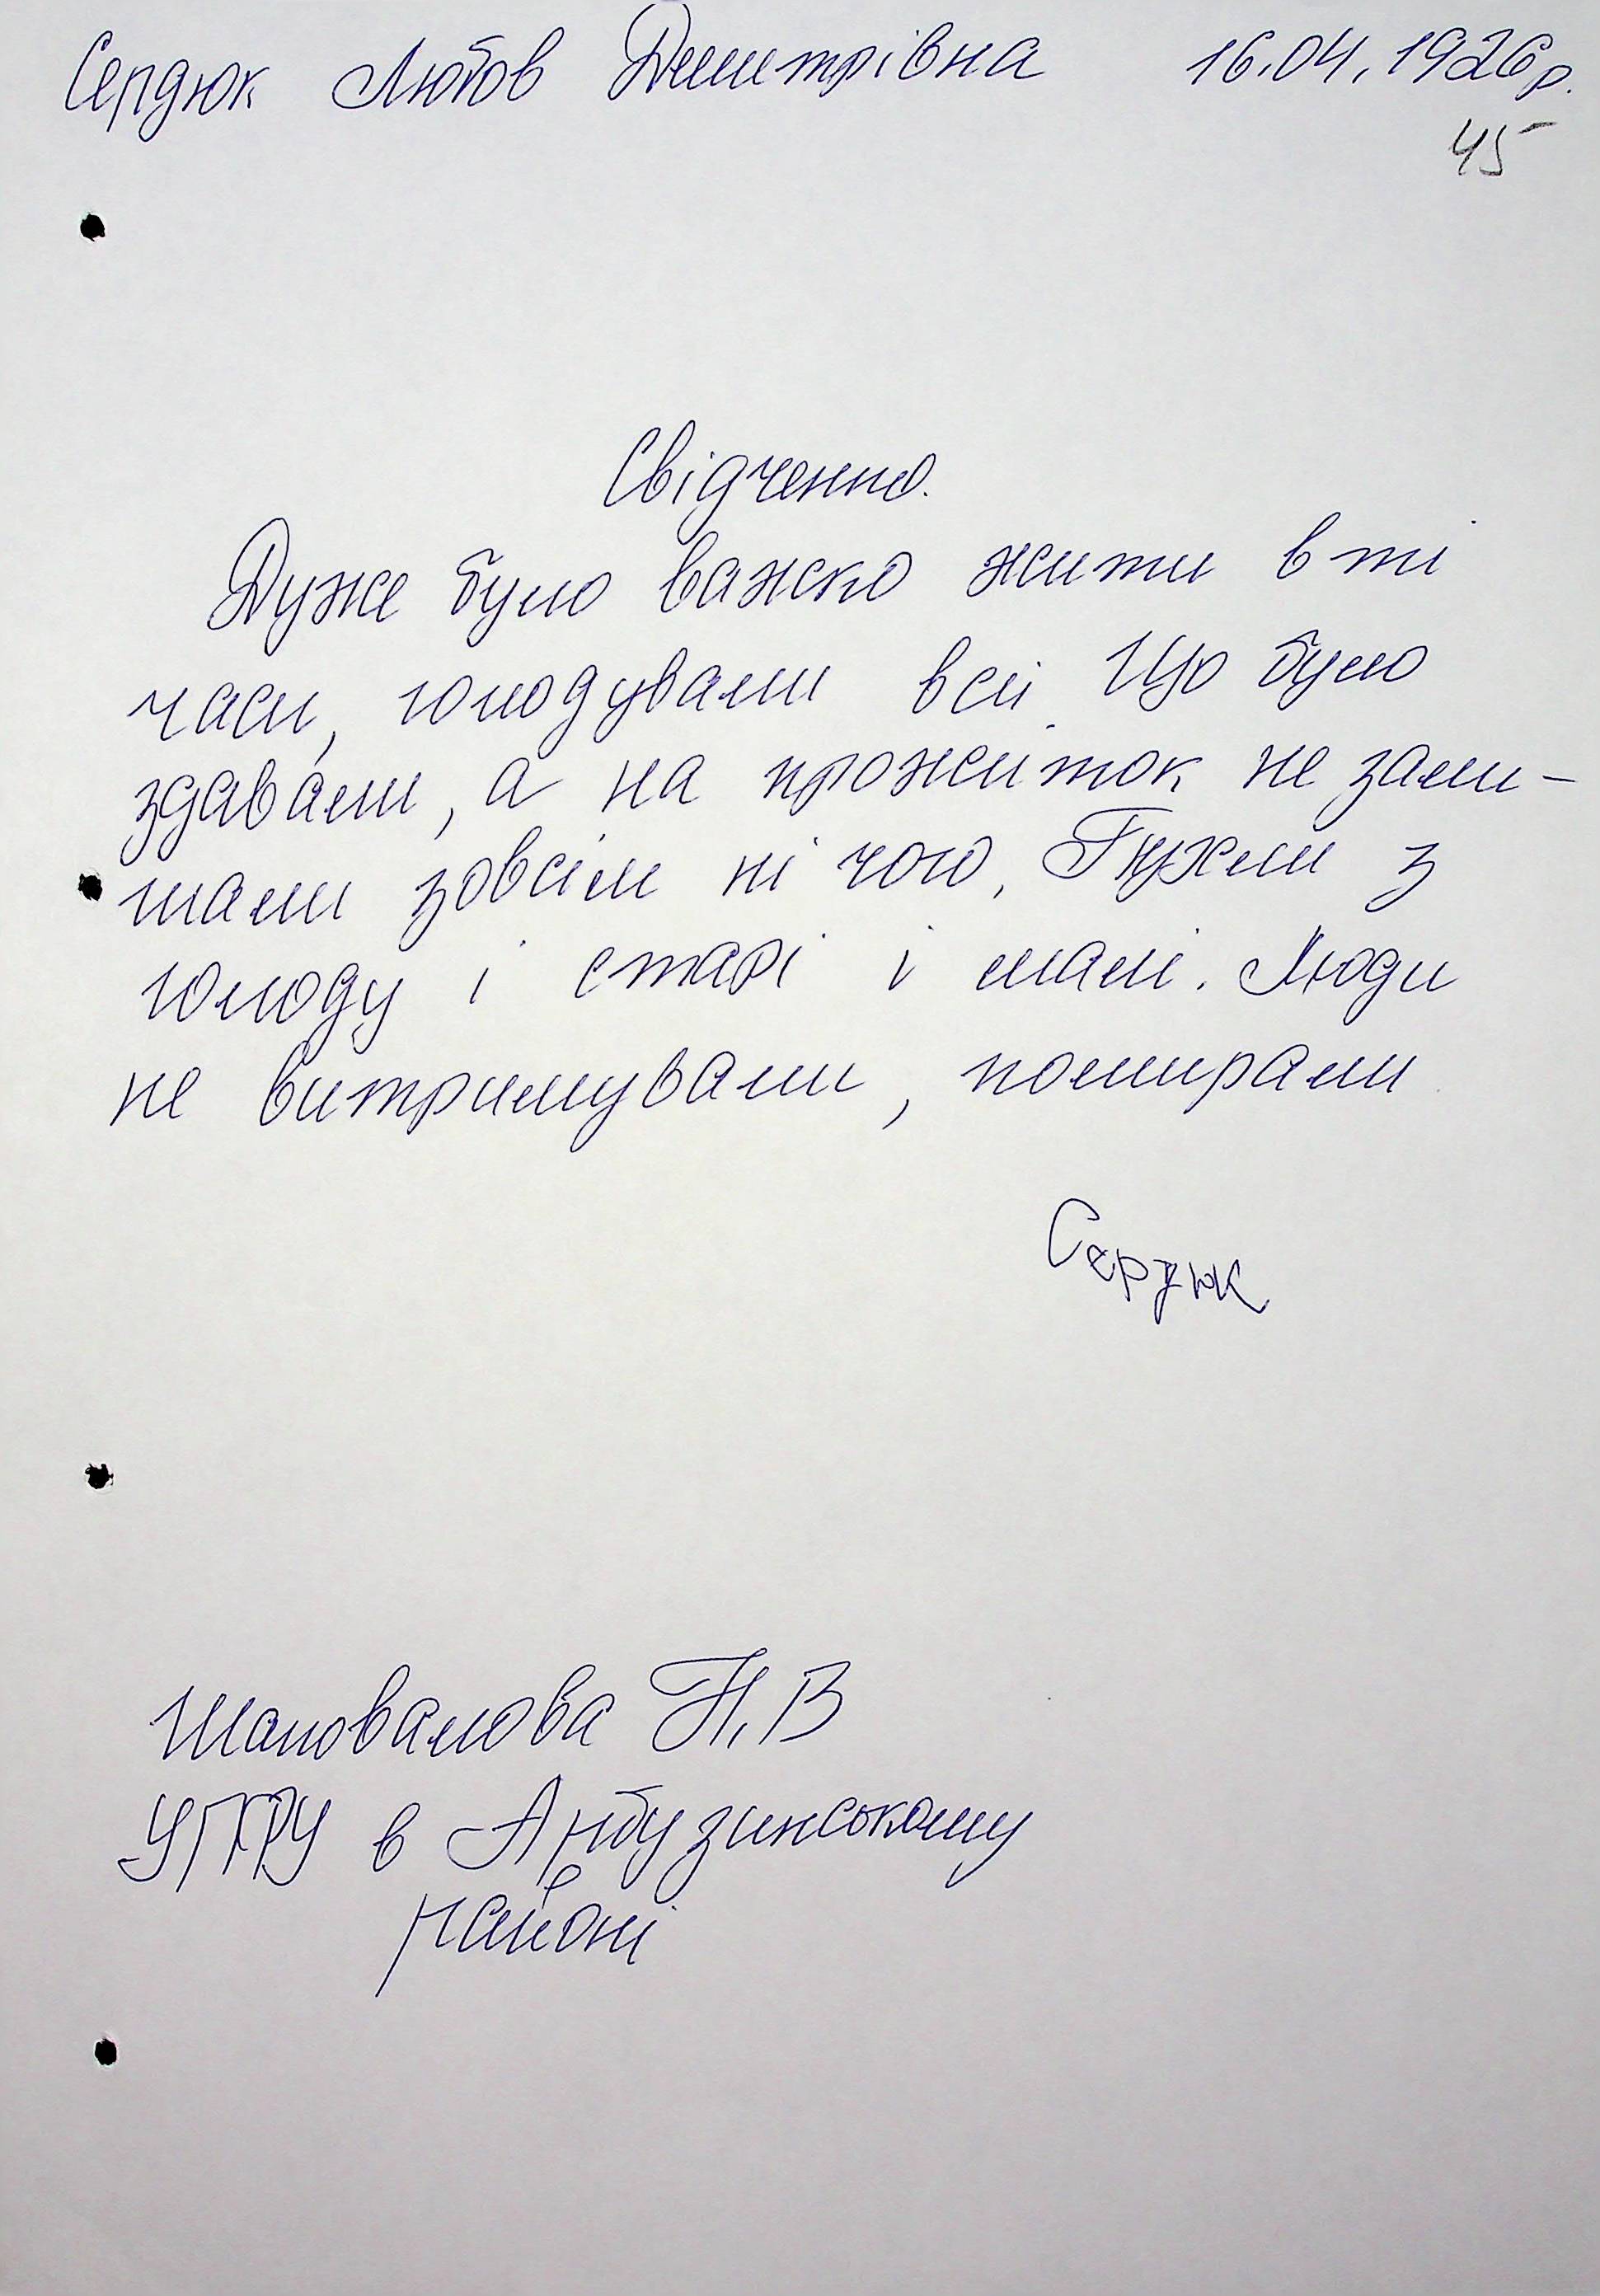 Сердюк Любов Дмитрівна 16.04.1926р.
45
Свідчення.
Дуже було важко жити в ті
часи, голодували всі. Що було
здавали, а на прожиток не зали-
шали зовсім ні чого. Пухли з
голоду і старі і малі. Люди
не витримували, помирали
Сердюк
Шаповалова Н.В
УПФУ в Арбузинському
районі